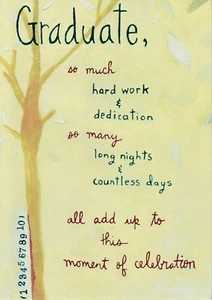 Graduate,
so much
hard work
&
dedication
so many
long nights
&
countless days
all add up to
this
moment of celebration
(12345678910)